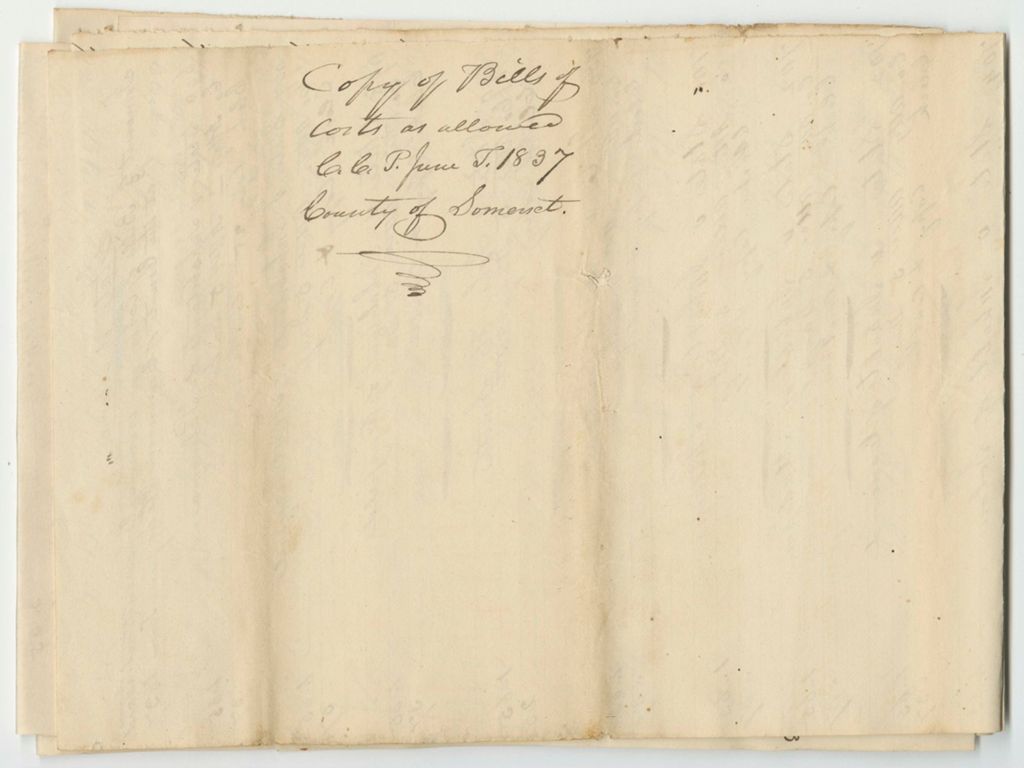 Copy of Bills of
Costs as allowed
C. C. P. June T. 1837
County of Somerset.